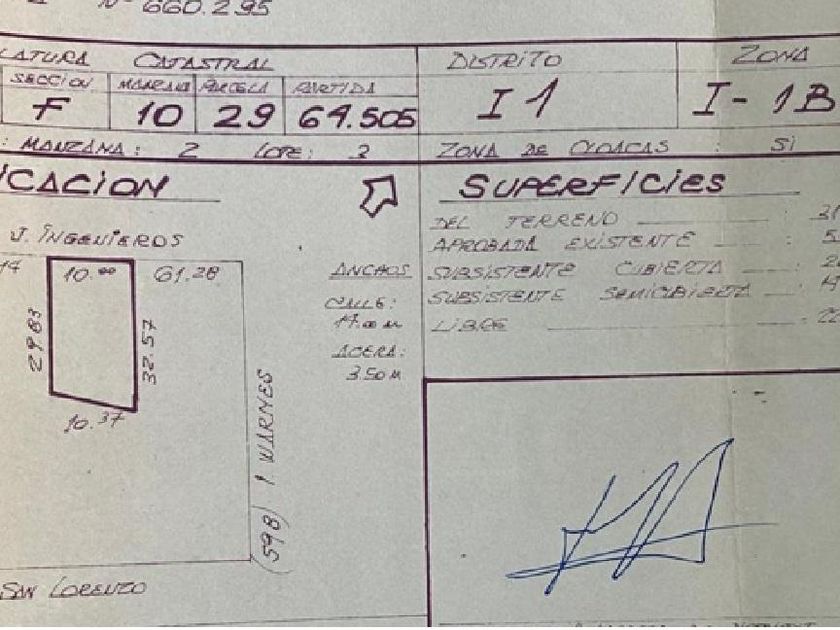 Nº 660.295
LATURA CATASTRAL
DISTRITO
ZONA
SECCION MANZANA PARCELA PARTIDA
F 10 29 64.505
I 1
I-1B
: MANZANA: 2 LOTE: 2
ZONA DE CLOACAS : SI
ICACION
SUPERFICIES
J. INGENIEROS
DEL TERRENO : 31
APROBADA EXISTENTE :
SUBSISTENTE CUBIERTA :
SUBSISTENTE SEMICUBIERTA :
LIBRE :
10.00 61.28
29.83
32.57
10.37
ANCHOS
CALLE:
17.00 M
ACERA:
3.50 M
(598) I WARNES
SAN LORENZO